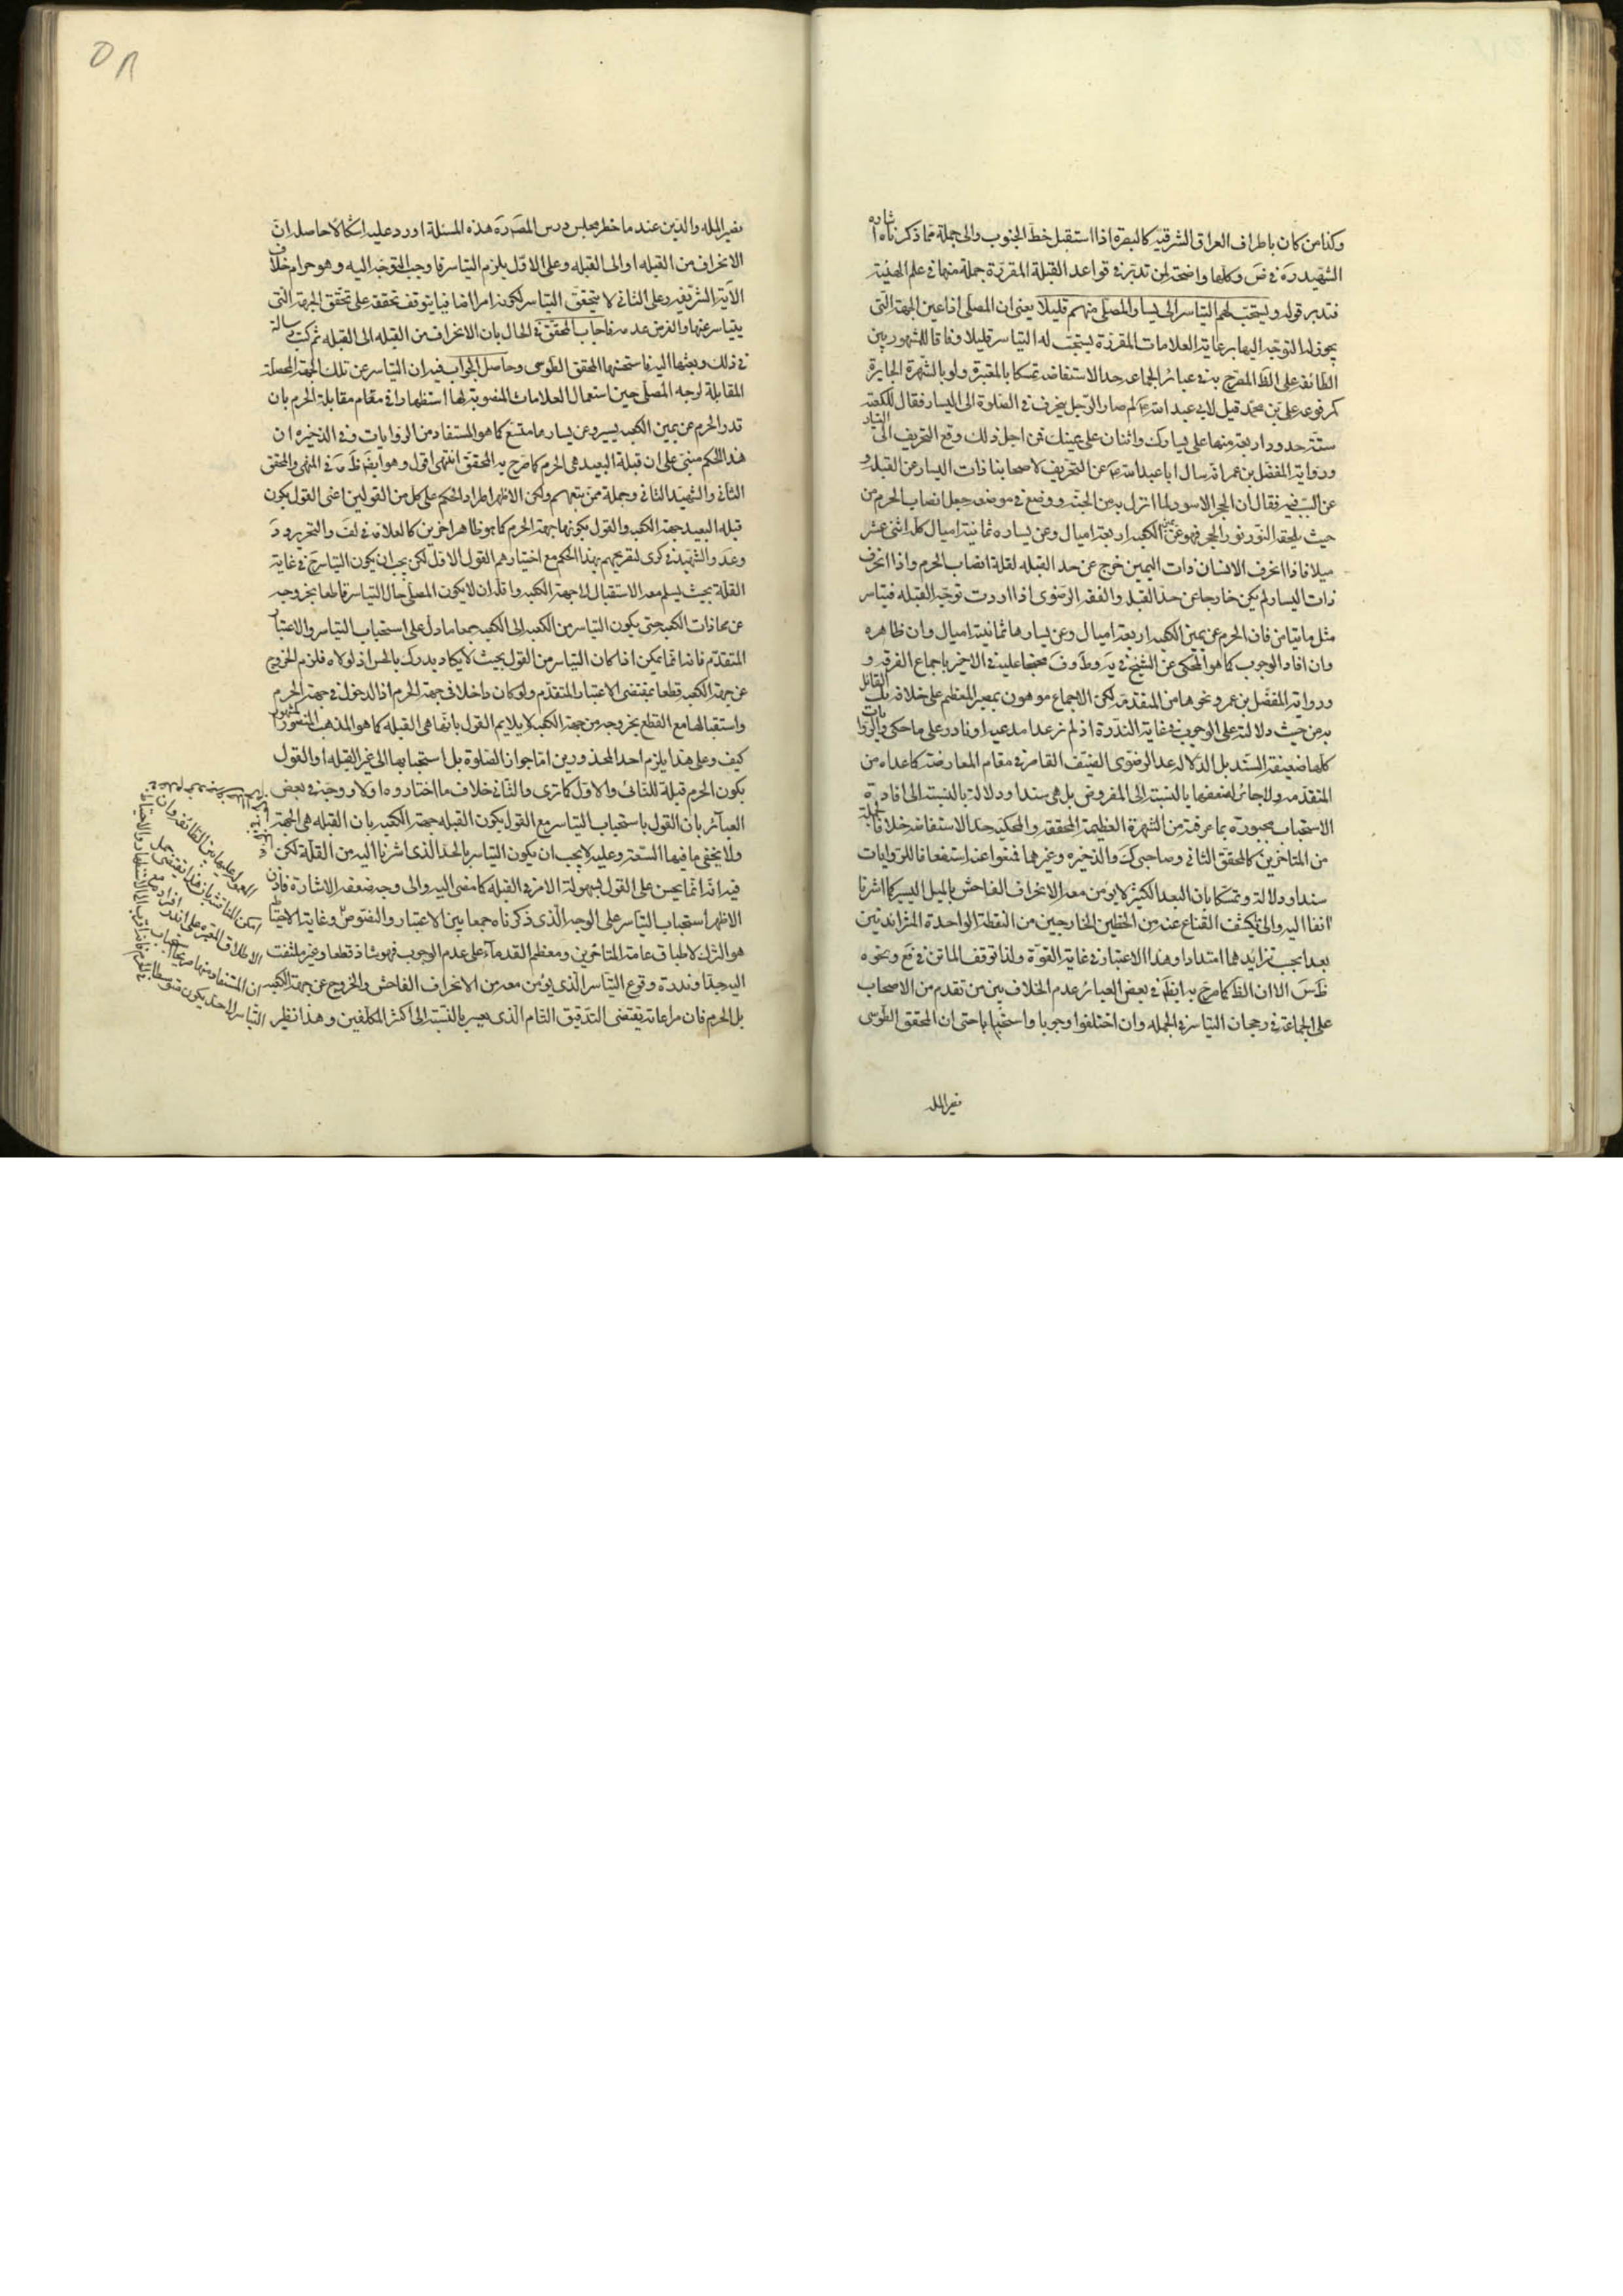 وكذا من كان باطراف العراق الشرقية كالبصرة اذا استقبل خط الجنوب والى جملة مما ذكرناه اشاره
الشهيد ره في ض وكلها واضحة لمن تدبر في قواعد القبلة المقررة جملة منها في علم الهيئة
فتدبر قوله ويستحب لهم التياسر الى يسار المصلى منهم قليلا يعنى ان المصلى اذا عين الجهة التى
يجوز له التوجه اليها برعاية العلامات المقررة يستحب له التياسر قليلا وفاقا للمشهور بين
الطائفة على الظ المصرح به في عباير الجماعه حد الاستفاضه تمسكا بالمعتبرة ولو بالشهرة الجابرة
كمرفوعه على بن محمد قيل لابي عبد الله ع لم صار الرجل ينحرف في الصلوة الى اليسار فقال للكعبة
ستة حدود اربعة منها على يسارك واثنان على يمينك فمن اجل ذلك وقع التحريف الى اليسار
ورواية المفضل بن عمر انه سال ابا عبد الله ع عن التحريف لاصحابنا ذات اليسار عن القبلة و
عن السبب فيه فقال ان الحجر الاسود لما انزل به من الجنة ووضع في موضعه جعل انصاب الحرم من
حيث يلحقه النور نور الحجر فهو عن يمين الكعبه اربعة اميال وعن يساره ثمانية اميال كله اثنى عشر
ميلا فاذا انحرف الانسان ذات اليمين خرج عن حد القبله لقلة انصاب الحرم واذا انحرف
ذات اليسار لم يكن خارجا عن حد القبله والفقه الرضوى اذا اردت توجه القبله فتياسر
مثل ما تيامن فان الحرم عن يمين الكعبه اربعة اميال وعن يسارها ثمانية اميال وان ظاهره
وان افاد الوجوب كما هو المحكى عن الشيخ في يه وط وف محتجا عليه في الاخير باجماع الفرقه و
ورواية المفضل بن عمر ونحوها من المتقدمة لكن الاجماع موهون بمصير المعظم على خلافه بل القائل
به من حيث دلالته على الوجوب في غاية الندرة اذ لم نر عدا مدعيه او نادر على ما حكى والروايات
كلها ضعيفة السند بل الدلاله عد الرضوى الضعيف القاصر في مقام المعارضة كما عداه من
المتقدمه والاجماع لضعفها بالنسبة الى المفروض بل هي سندا ودلالة بالنسبة الى افادة
الاستحباب مجبورة بما عرفته من الشهرة العظيمة المحققة والمحكية حد الاستفاضه خلافا لجملة
من المتاخرين كالمحقق الثانى وصاحبى ك والذخيره وغيرهما فمنعوا عنه استضعافا للروايات
سندا ودلالة وتمسكا بان البعد الكثير لا يؤمن معه الانحراف الفاحش بالميل اليسير كما اشرنا
انفا اليه والى كشف القناع عنه من الخطين الخارجين من النقطة الواحدة المتزايدتين
بعدا بحسب تزايدهما امتدادا وهذا الاعتبار في غاية القوة ولذا توقف الماتن في فع ونحوه
ظ س الا ان الظ كما صرح به ايظ في بعض العباير عدم الخلاف بين من تقدم من الاصحاب
على الجماعة في رجحان التياسر في الجمله وان اختلفوا وجوبا واستحبابا حتى ان المحقق الطوسى
نصير المله
نصير المله والدين عند ما حضر مجلس درس المصنف ره هذه المسئلة اورد عليه اشكالا حاصله ان
الانحراف من القبله او الى القبله وعلى الاول يلزم التياسر عما وجب التوجه اليه وهو حرام خلاف
الآية الشريفه وعلى الثانى لا يتحقق التياسر لكونه امرا اضافيا يتوقف تحققه على تحقق الجهة التى
يتياسر عنها والفرض عدمه فاجاب المحقق في الحال بان الانحراف من القبله الى القبله ثم كتب رسالة
في ذلك وبعثها اليه فاستحسنها المحقق الطوسى وحاصل الجواب فيه ان التياسر عن تلك الجهة المحصلة
المقابلة لوجه المصلى حين استعمال العلامات المنصوبة لها استظهارا في مقام مقابلة الحرم بان
قدر الحرم عن يمين الكعبه يسير وعن يساره متسع كما هو المستفاد من الروايات وفي الذخيره ان
هذا الحكم مبنى على ان قبلة البعيد هى الحرم كما صرح به المحقق انتهى اقول وهو ايضا ظ مه في المنتهى والمحقق
الثانى والشهيد الثانى وجملة ممن تبعهم ولكن الاظهر اطراد الحكم على كل من القولين اعنى القول بكون
قبله البعيد جهة الكعبه والقول بكونها جهة الحرم كما هو ظاهر اخرين كالعلامه في لف والتحرير ود
وعد والشهيد في كرى لتصريحهم بهذا الحكم مع اختيارهم القول الاول لكن يجب ان يكون التياسر ح في غاية
القلة بحيث يسلم معه الاستقبال الى جهة الكعبه واقله ان لا يكون المصلى حال التياسر قاطعا بخروجه
عن محاذات الكعبه حتى يكون التياسر من الكعبه الى الكعبه جمعا ما دل على استحباب التياسر والاعتبار
المتقدم فانما يمكن اذا كان التياسر من القول بحيث لا يكاد يدرك بالحس اذ لولاه فلزم الخروج
عن جهة الكعبه قطعا بمقتضى الاعتبار المتقدم ولو كان داخلا في جهة الحرم اذ الدخول في جهة الحرم
واستقبالها مع القطع بخروجه من جهة الكعبه لا يلايم القول بانها هى القبله كما هو المذهب المنصور المشهور
كيف وعلى هذا يلزم احد المحذورين اما جواز الصلوة بل استحبابها الى غير القبله او القول
بكون الحرم قبلة للنائى والاول كما ترى والثانى خلاف ما اختاروه اولا ووجه في بعض
العبائر بان القول باستحباب التياسر مع القول بكون القبله جهة الكعبه بان القبله هى الجهة
ولا يخفى ما فيها السعة وعليه لا يجب ان يكون التياسر بالحد الذى اشرنا اليه من القلة لكن
فيه انه انما يحسن على القول بسهولة الامر في القبله كما مضى اليه والى وجه ضعفه الاشارة فاذن
الاظهر استحباب التياسر على الوجه الذى ذكرناه جمعا بين الاعتبار والنصوص وغاية الاحتياط
هو الترك لاطباق عامة المتاخرين ومعظم القدماء على عدم الوجوب فهو شاذ قطعا وغير ملتفت
اليه جدا وندرة وقوع التياسر الذى يؤمن معه من الانحراف الفاحش والخروج عن جهة الكعبه
بل الحرم فان مراعاته يقتضى التدقيق التام الذى يعسر بالنسبة الى اكثر المكلفين وهذا نظير
المعول عليها بين الطائفه وان
امكن المناقشه بان هذا يقتضى حمل
الاطلاق النصوص على اندر افراده مع
ان المستفاد منها صريحا استحباب
التياسر الا حد يكون متوسطا